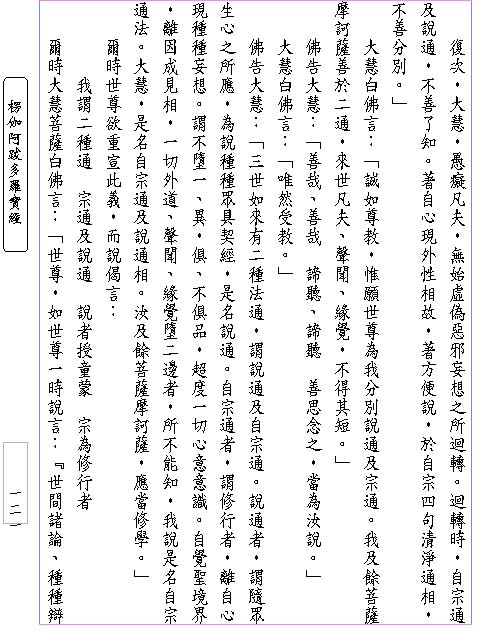 復次，大慧，愚癡凡夫，無始虛偽惡邪妄想之所迴轉。迴轉時，自宗通
及說通，不善了知。著自心現外性相故，著方便說，於自宗四句清淨通相，
不善分別。」
大慧白佛言：「誠如尊教，惟願世尊為我分別說通及宗通。我及餘菩薩
摩訶薩善於二通，來世凡夫、聲聞、緣覺，不得其短。」
佛告大慧：「善哉、善哉　諦聽、諦聽　善思念之，當為汝說。」
大慧白佛言：「唯然受教。」
佛告大慧：「三世如來有二種法通，謂說通及自宗通。說通者，謂隨眾
生心之所應，為說種種眾具契經，是名說通。自宗通者，謂修行者，離自心
現種種妄想。謂不墮一、異，俱、不俱品，超度一切心意意識。自覺聖境界
，離因成見相，一切外道、聲聞、緣覺墮二邊者，所不能知，我說是名自宗
通法。大慧，是名自宗通及說通相。汝及餘菩薩摩訶薩，應當修學。」
爾時世尊欲重宣此義，而說偈言：
我謂二種通　宗通及說通　說者授童蒙　宗為修行者
爾時大慧菩薩白佛言：「世尊，如世尊一時說言：『世間諸論、種種辯
楞伽阿跋多羅寶經
一二一